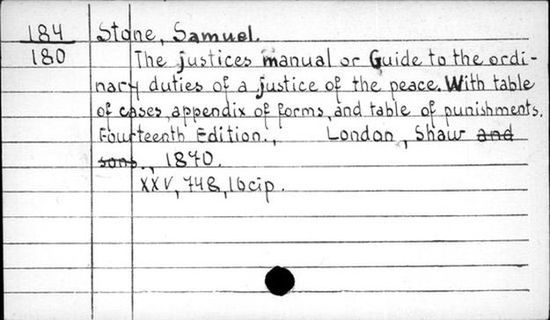 184 Stone, Samuel.
180 The justices manual or Guide to the ordi-
nary duties of a justice of the peace. With table
of cases, appendix of forms, and table of punishments.
Fourteenth Edition., London, Shaw and
sons., 1870.
XXV, 748, 16 cip.